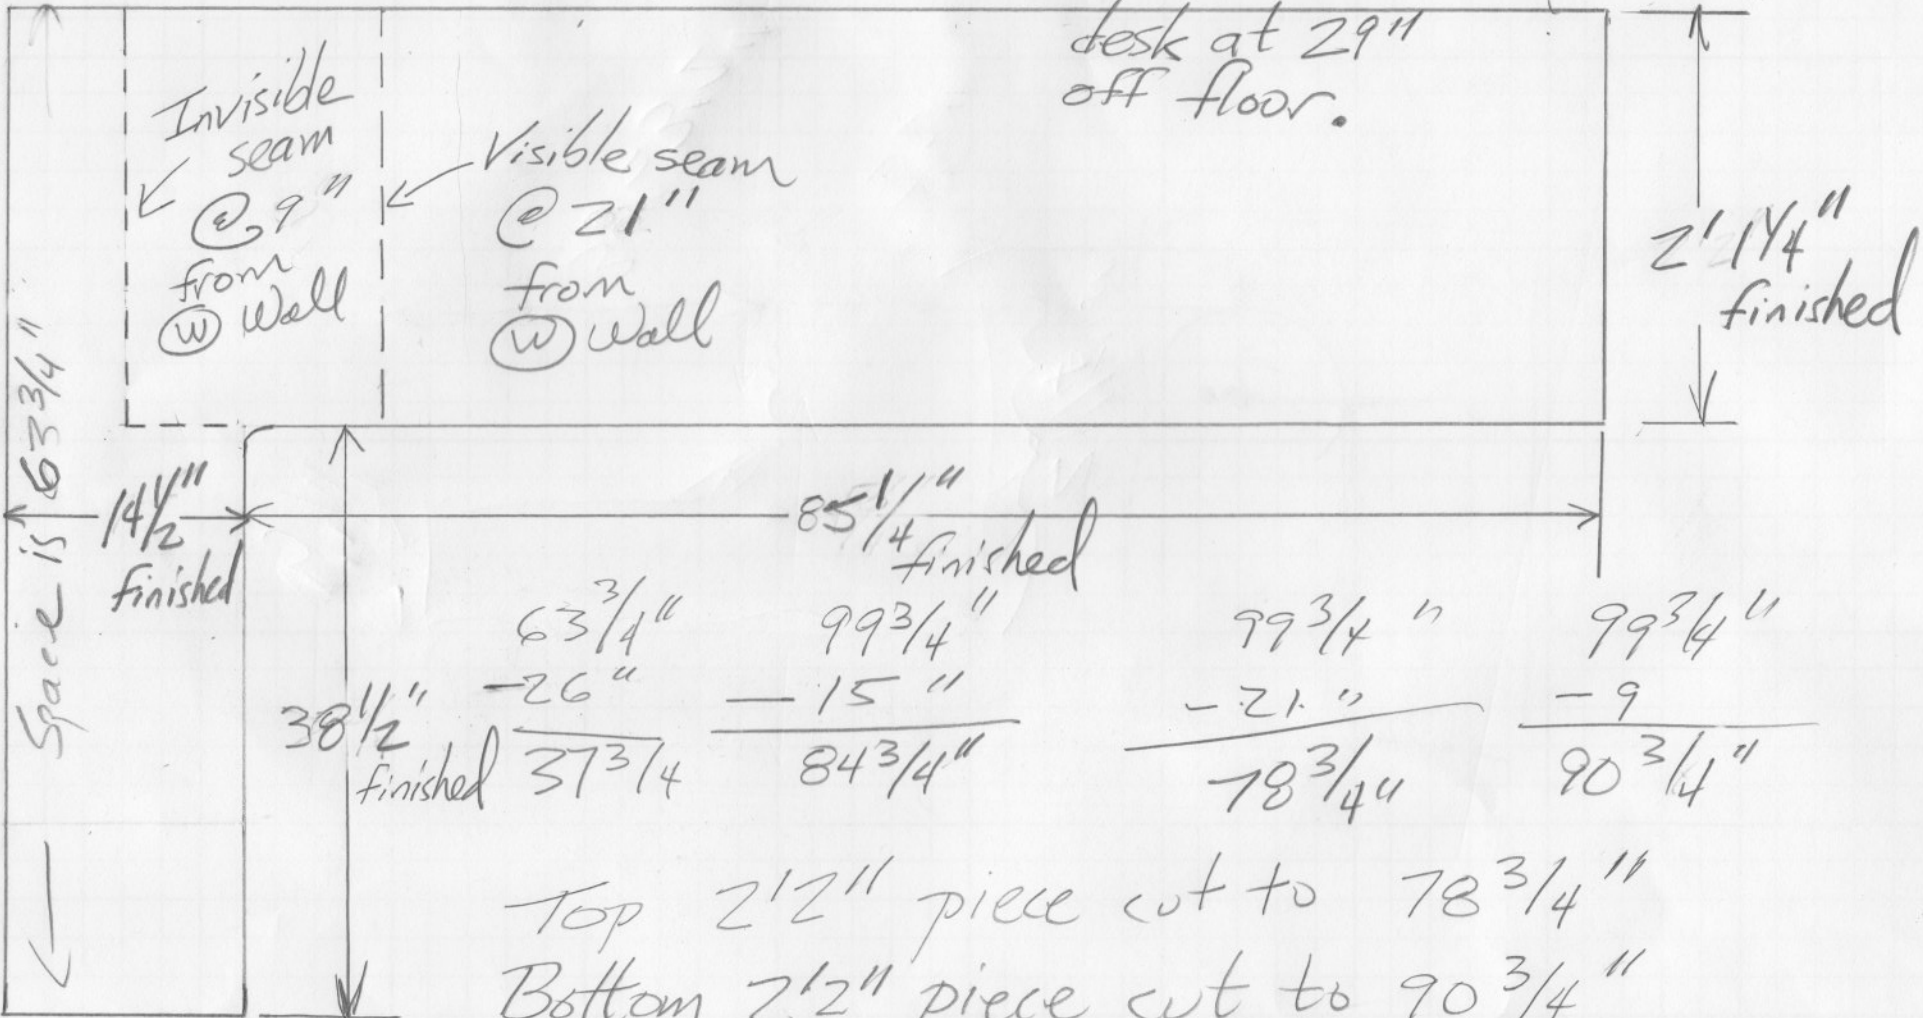 desk at 29"
off floor.
Invisible
seam
@ 9"
from
W Wall
Visible seam
@ 21"
from
W Wall
2' 1 1/4"
finished
Space is 63 3/4"
14 1/2"
finished
85 1/4"
finished
38 1/2"
finished
63 3/4"
-26"
37 3/4
99 3/4"
- 15"
84 3/4"
99 3/4"
- 21"
78 3/4"
99 3/4"
- 9
90 3/4"
Top 2'2" piece cut to 78 3/4"
Bottom 2'2" piece cut to 90 3/4"